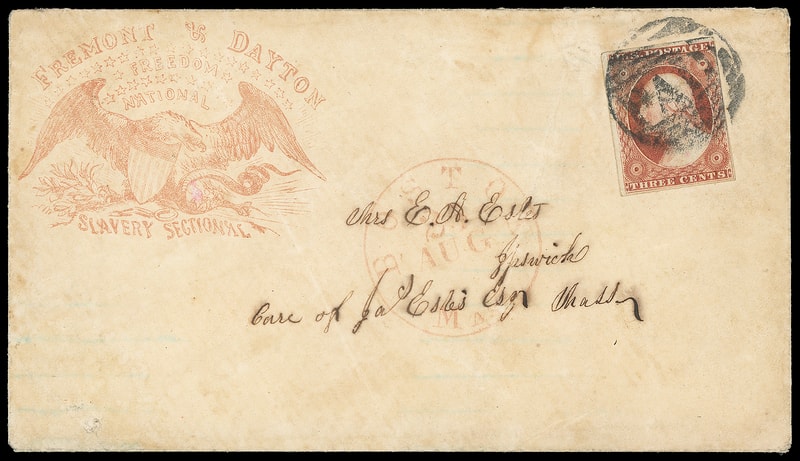 FREMONT & DAYTON
FREEDOM
NATIONAL
SLAVERY SECTIONAL
U.S. POSTAGE
THREE CENTS
BOSTON
AUG
MA
Mrs E. A. Estes
Ipswich
Care of Jas Estes Esqr Mass